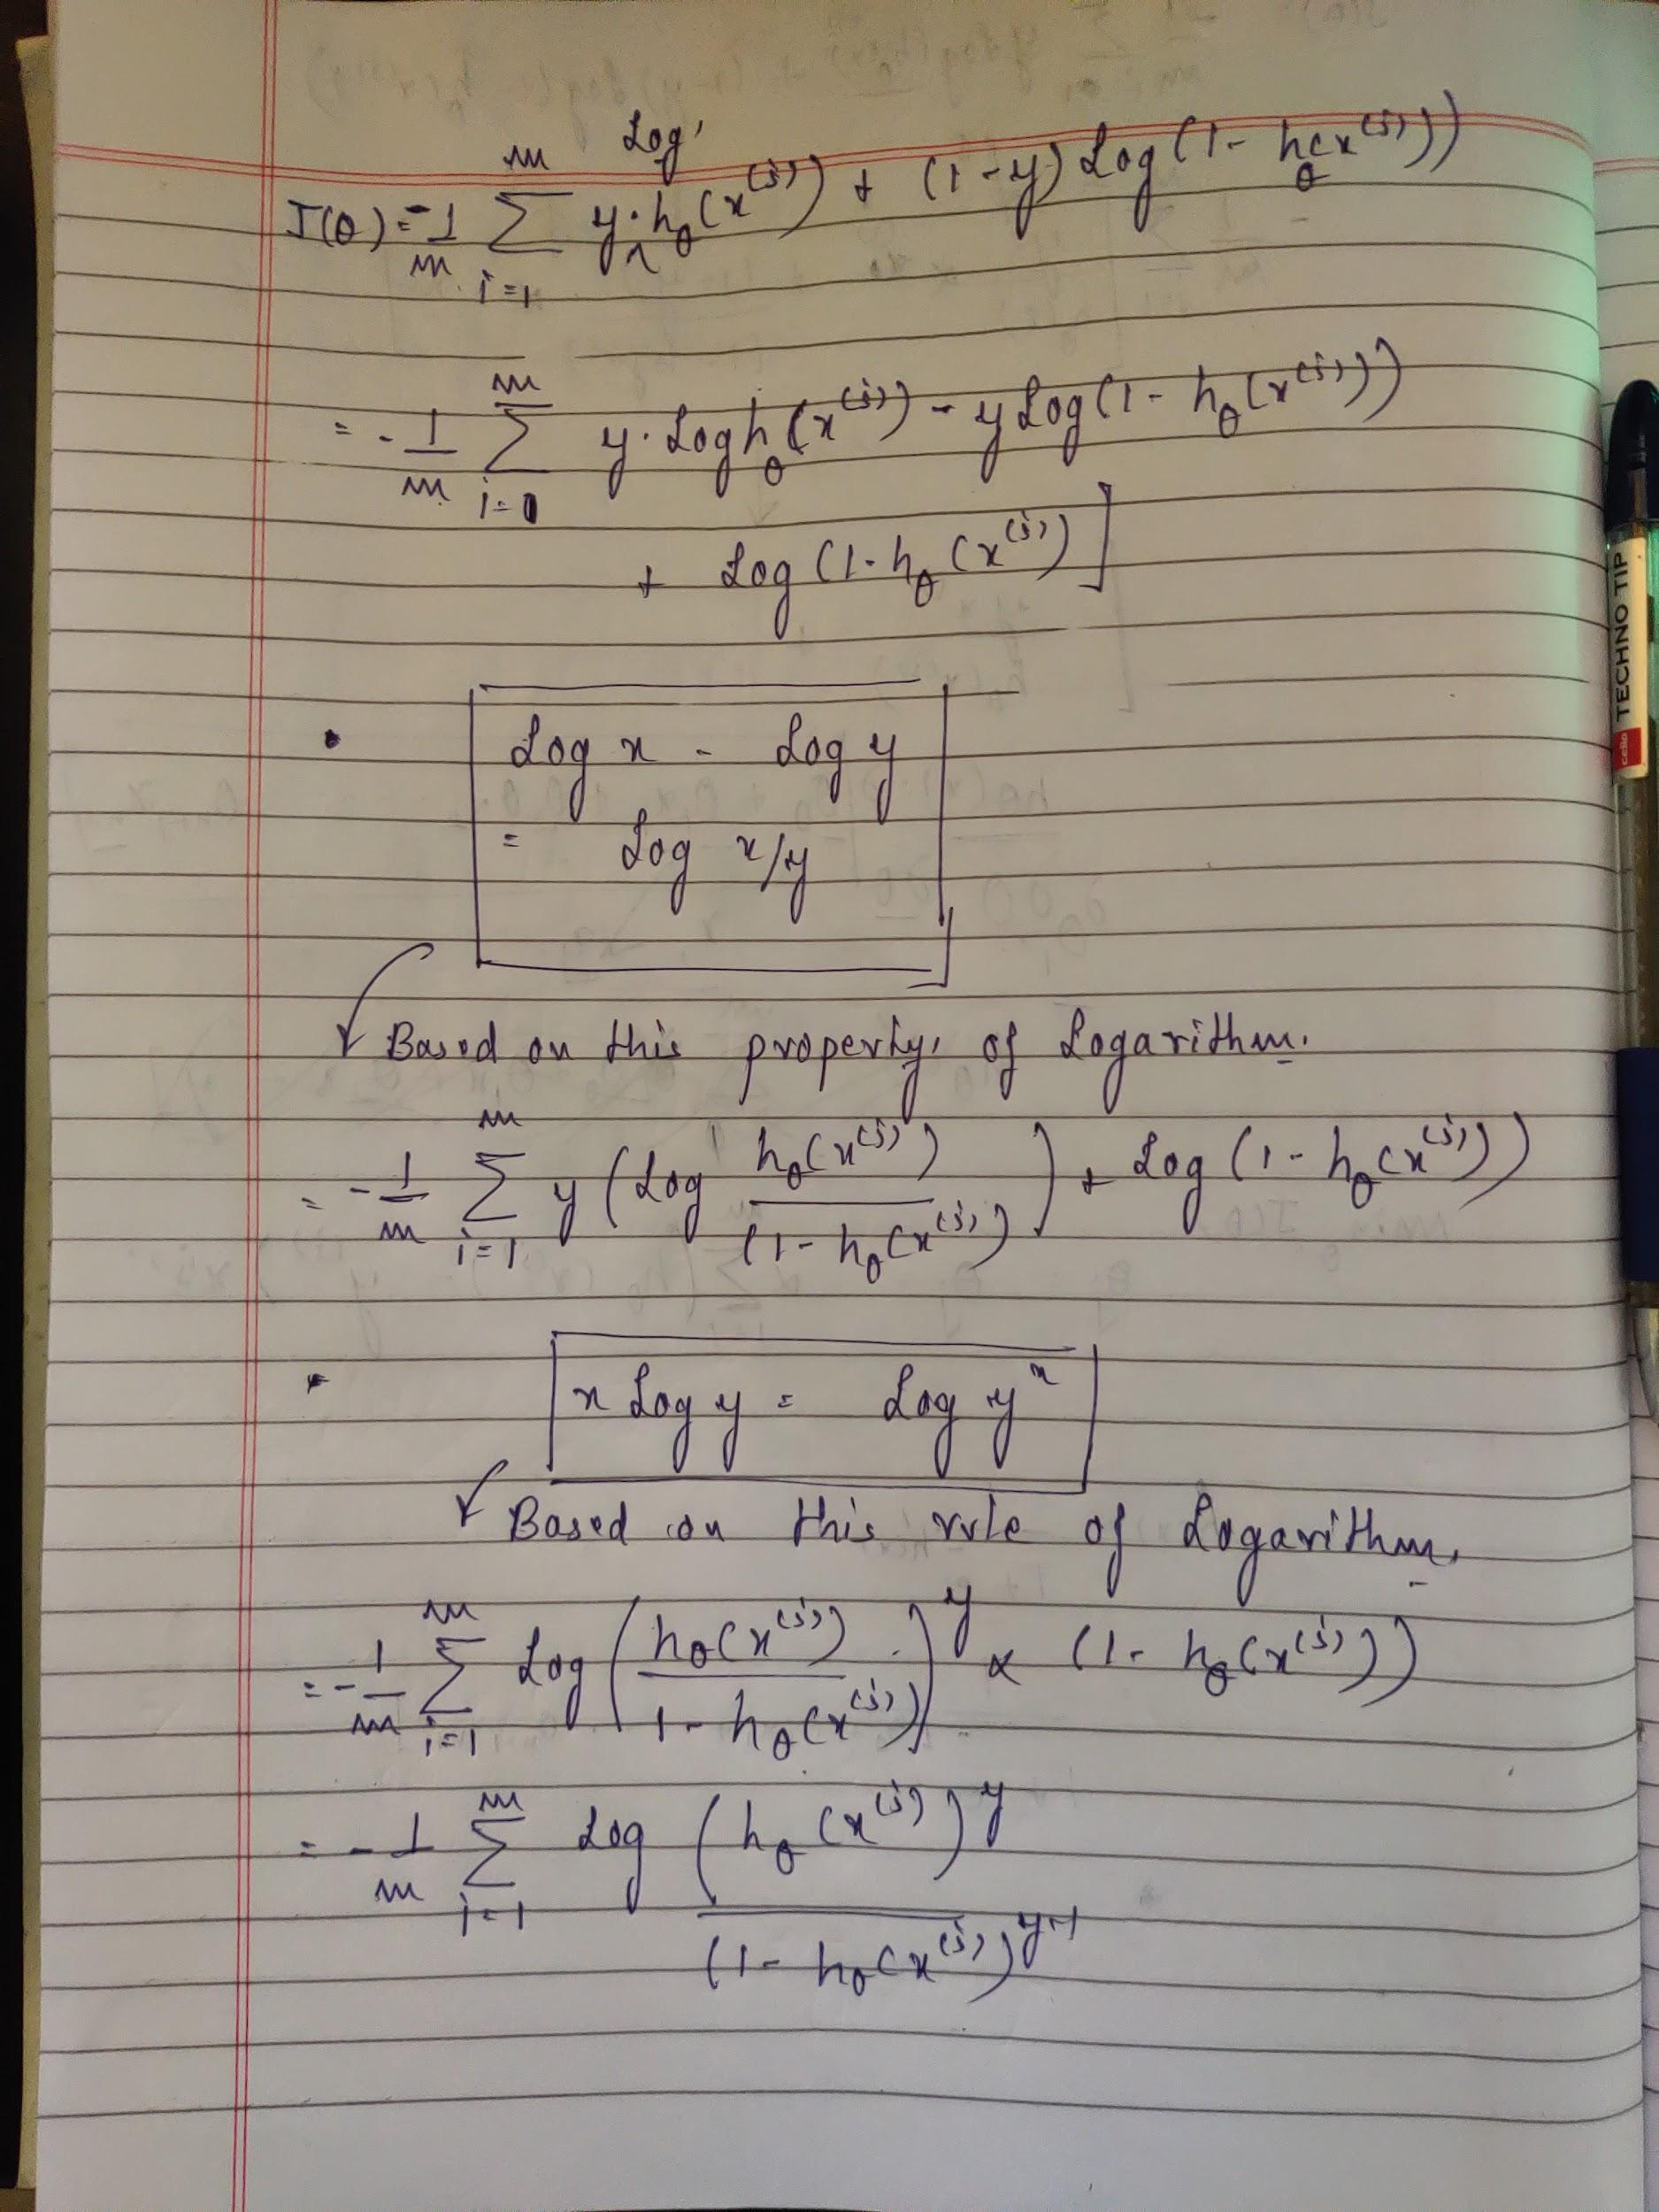 Log
J(θ) = -1/m Σ_{i=1}^{m} y·h_θ(x^(i)) + (1-y) Log(1- h_θ(x^(i)))
= -1/m Σ_{i=0}^{m} y·Log h_θ(x^(i)) - y Log(1- h_θ(x^(i)))
+ Log (1-h_θ(x^(i)]
• Log x - Log y
= Log x/y
Based on this property of Logarithm.
= -1/m Σ_{i=1}^{m} y (Log h_θ(x^(i))/(1-h_θ(x^(i))) + Log (1- h_θ(x^(i)))
• x Log y = Log y^x
Based on this rule of Logarithm.
= -1/m Σ_{i=1}^{m} Log (h_θ(x^(i))/1-h_θ(x^(i)))^y × (1- h_θ(x^(i)))
= -1/m Σ_{i=1}^{m} Log (h_θ(x^(i))^y/(1-h_θ(x^(i)))^y-1
cello TECHNO TIP